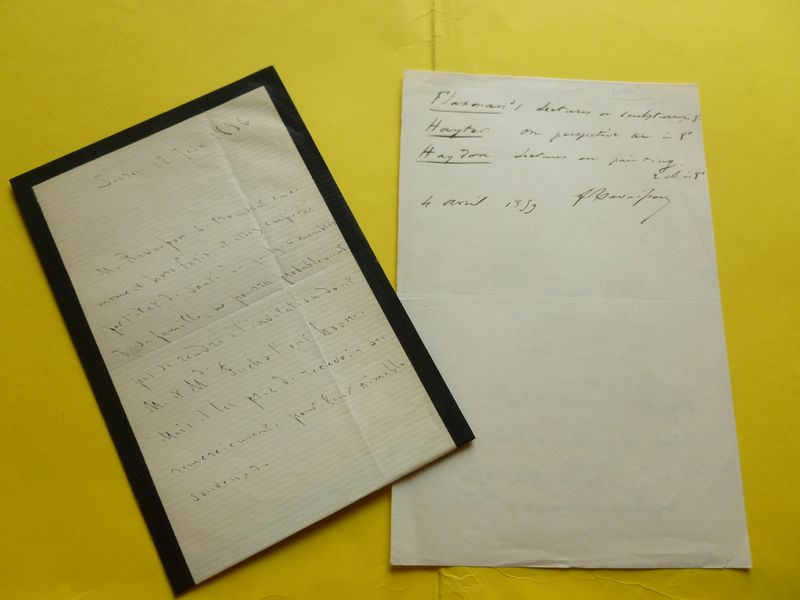 Sèvres 12 Juin 186
M. Ravaisson se trouvant en ce
moment hors Paris et assez empêché
par l'état de santé de membres
de sa famille, ne pourra probablement
pas se rendre à l'invitation dont
M. et Me Fuchs l'ont honoré.
Mais il les prie de recevoir ses
remerciements pour leur aimable
souvenir.
Flaxman's Lectures on sculpture, in 8°
Hayter on perspective &c in 8°
Haydon Lectures on painting.
2 vol. in 8°
4 avril 1859 FRavaisson